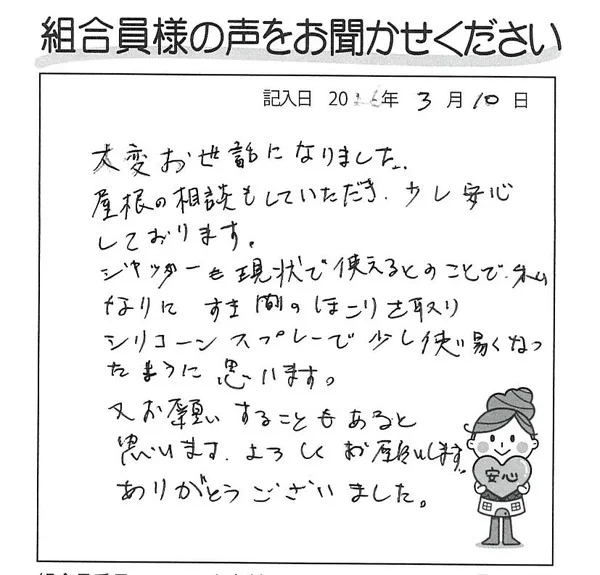 組合員様の声をお聞かせください
記入日 20 年 3月10日
大変お世話になりました。
屋根の相談もしていただき、少し安心
しております。
シャッターも現状で使えるとのことで、私
なりに すき間のほこりを取り
シリコーンスプレーで少し使い易くなっ
たように思います。
又お願いすることもあると
思います、よろしくお願いします。
ありがとうございました。
安心